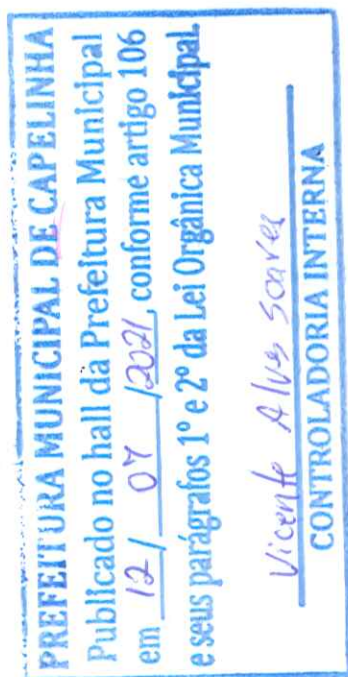 PREFEITURA MUNICIPAL DE CAPELINHA
Publicado no hall da Prefeitura Municipal
em 12/ 07 /2021, conforme artigo 106
e seus parágrafos 1º e 2º da Lei Orgânica Municipal.
Vicente Alves Soares
CONTROLADORIA INTERNA